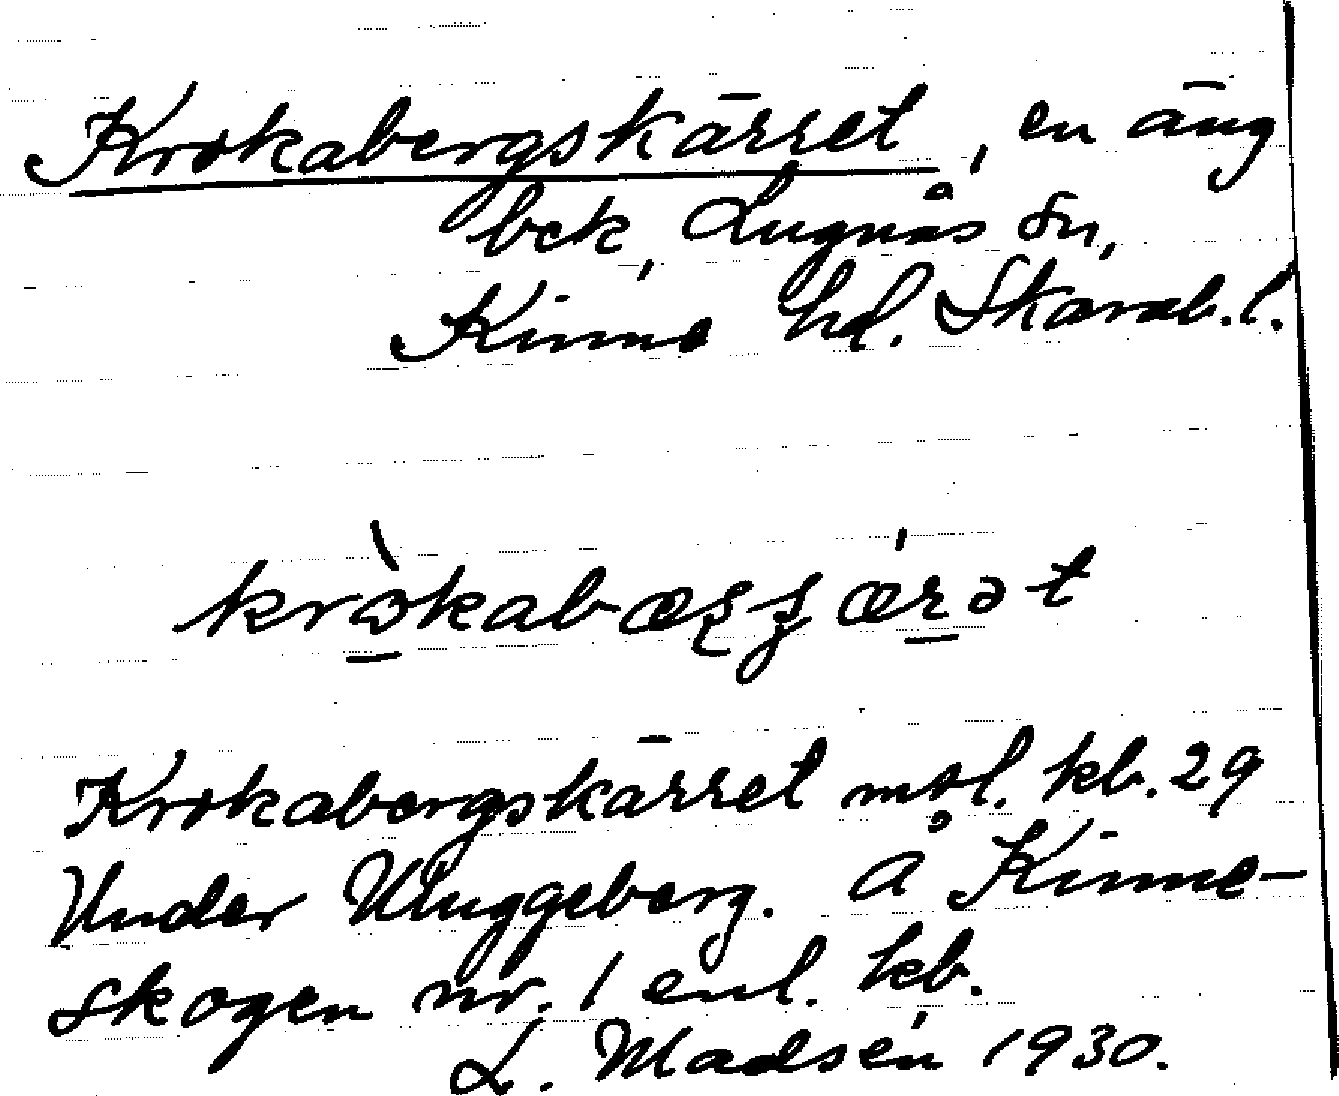 Krokabergskärret, en äng
bck, Lugnås sn,
Kinne hd. Skarab.l.
kròkabæʂʂǽrət
Krokabergskärret mål. kb. 29
Under Kluggeberg. Å Kinne-
skogen nr. 1 enl. kb.
L. Madsén 1930.